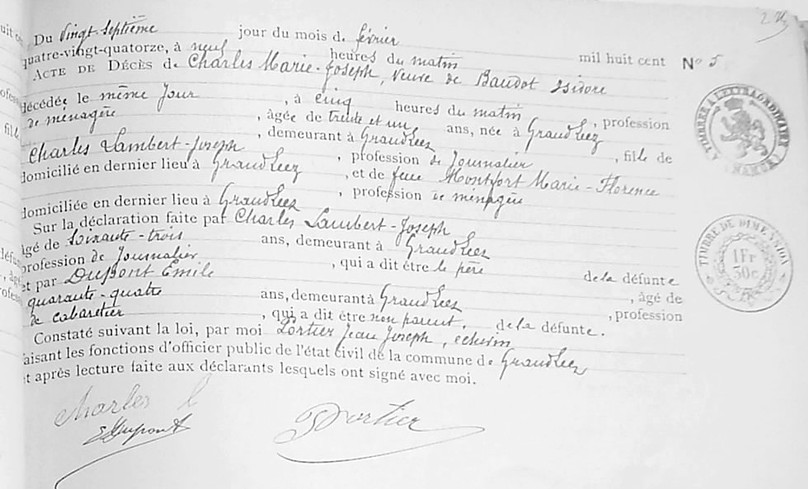 243
Du Vingt Septième jour du mois de février mil huit cent N° 5
quatre-vingt-quatorze, à neuf heures du matin
ACTE DE DÉCÈS de Charles Marie-Joseph, Veuve de Baudot Isidore
décédée le même jour, à cinq heures du matin, profession
de ménagère, âgée de trente et un ans, née à GrandLez, fille de
Charles Lambert-Joseph, demeurant à GrandLeez
domicilié en dernier lieu à GrandLeez, profession de Journalier
, et de feue Montfort Marie-Florence
domiciliée en dernier lieu à GrandLeez, profession de ménagère
Sur la déclaration faite par Charles Lambert-Joseph
âgé de soixante-trois ans, demeurant à GrandLeez
profession de Journalier, qui a dit être le père de la défunte
et par Dupont Emile, âgé de
quarante-quatre ans, demeurant à GrandLeez, profession
de cabaretier, qui a dit être non parent. de la défunte.
Constaté suivant la loi, par moi Tortier Jean Joseph, échevin
faisant les fonctions d'officier public de l'état civil de la commune de GrandLeez
et après lecture faite aux déclarants lesquels ont signé avec moi.
Charles l
EDupont
Tortier
TIMBRE A L'EXTRAORDINAIRE
(NAMUR)
TIMBRE DE DIMENSION
1Fr
30c